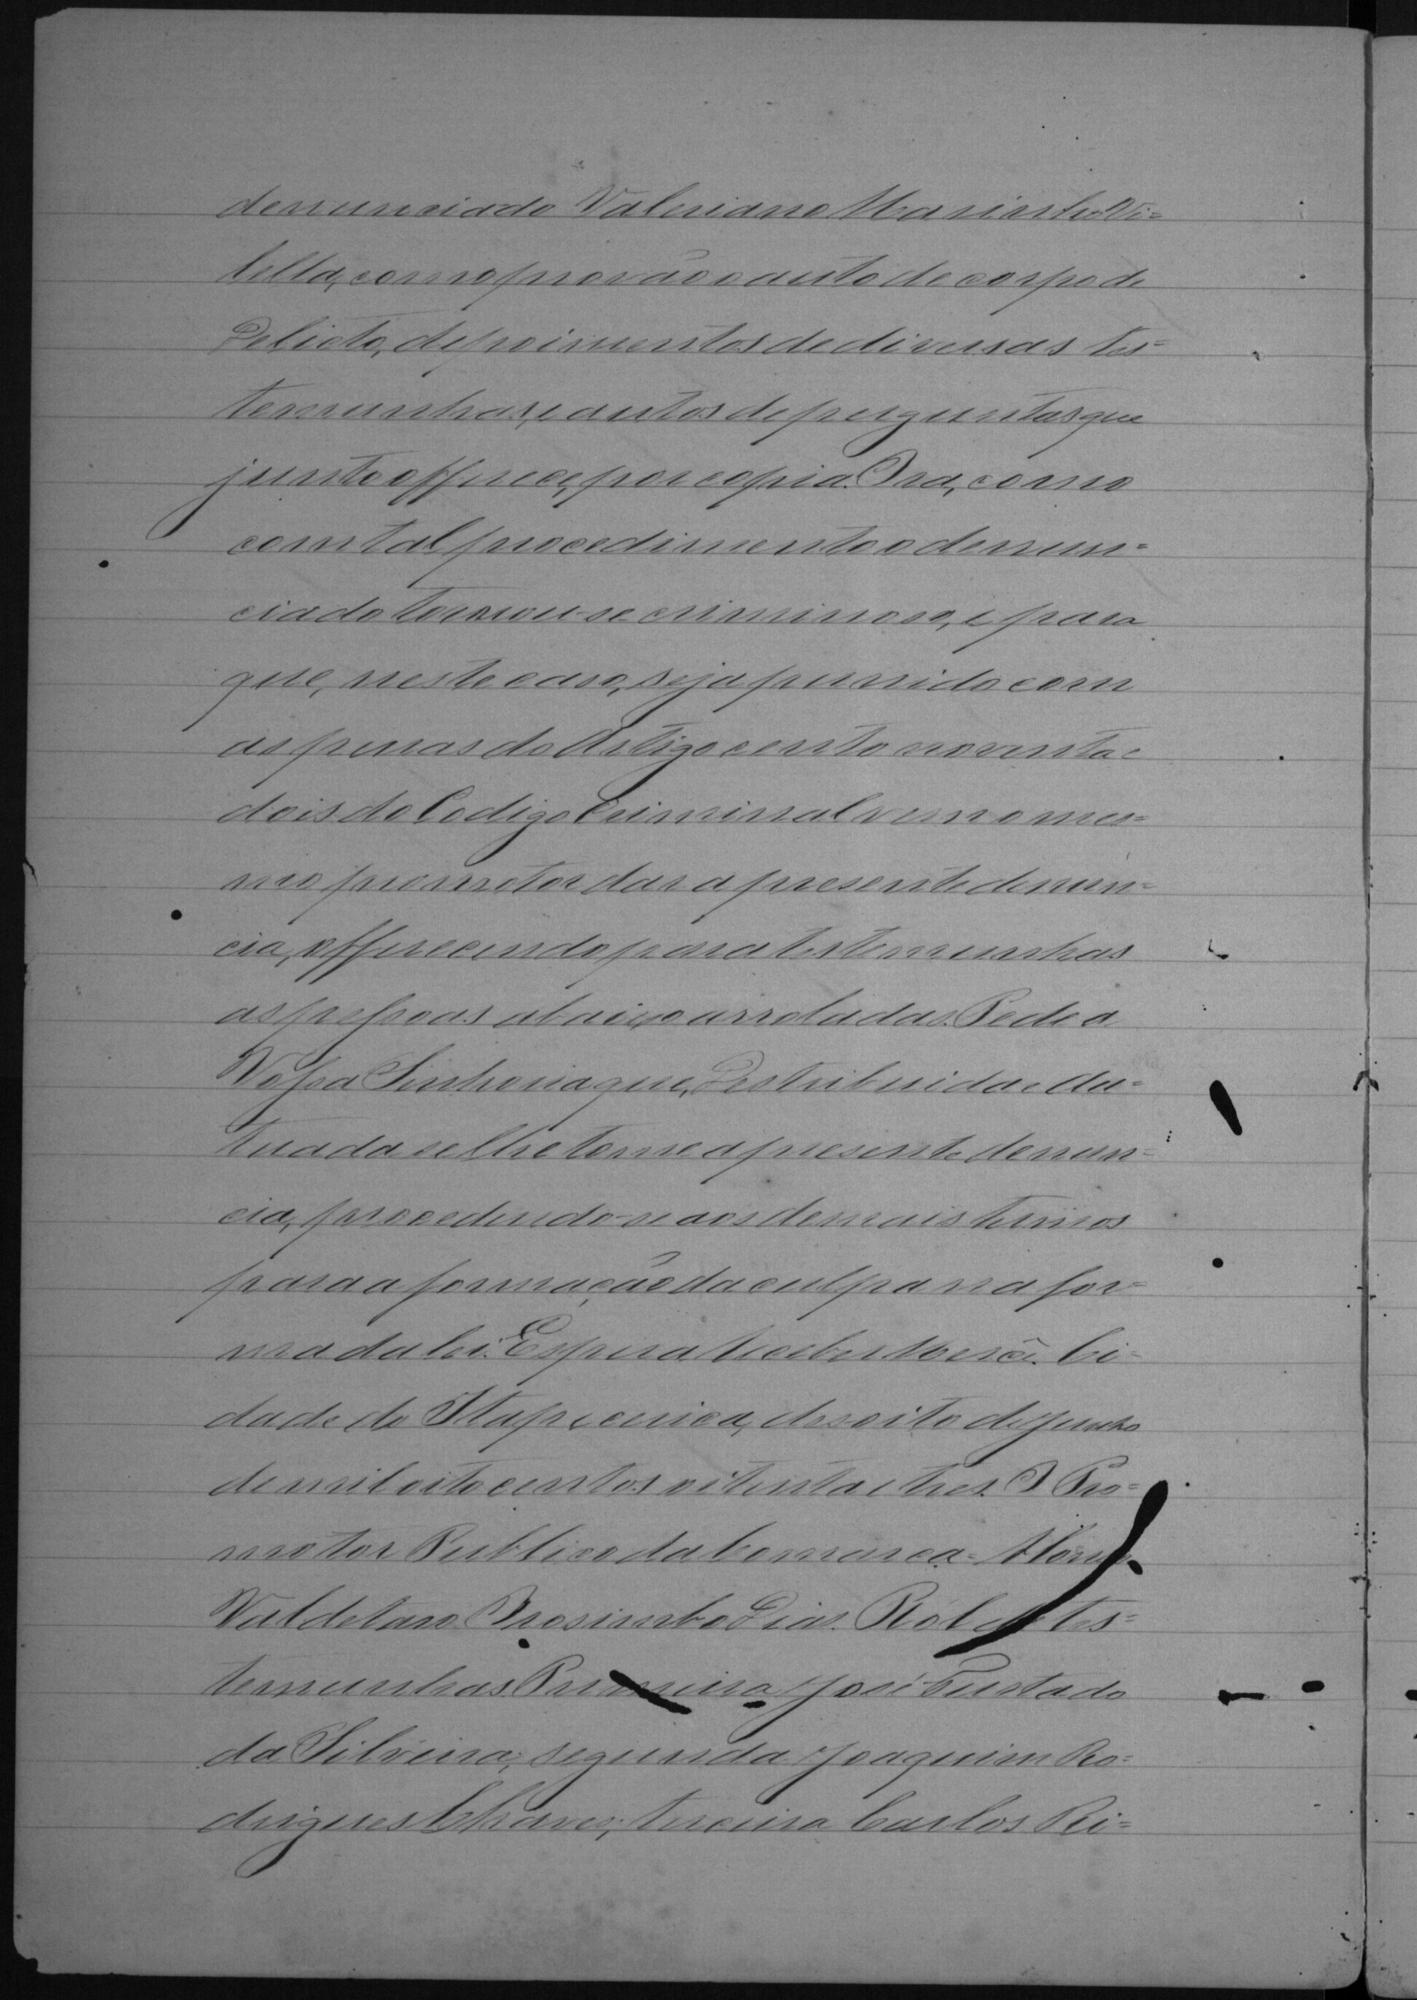 denunciado Valeriano Marinho Vi=
lella, como provão o auto de corpo de
Delicto, depoimentos de diversas tes=
temunhas, e autos de perguntas que
junto offerece, por copia. Ora, como
com tal procedimento o denun=
ciado tornou-se criminoso, e para
que, neste caso, seja punido com
as penas do Artigo cento noventa e
dois do Codigo Criminal vem o mes=
mo promotor dar a presente denun=
cia, offerecendo para testemunhas
as pessoas abaixo arroladas. Pede a
Vossa Senhoria que, Destribuida e Au=
tuada se lhe tome a presente denun=
cia, procedendo-se aos demais termos
para a formação da culpa na for=
ma da lei. Espera Receber Mercê. Ci=
dade de Itapecerica, desoito de junho
de mil oito centos oitenta e tres. O Pro=
motor Publico da Comarca=
Valdetaro Dias. Rol de tes=
temunhas Primeira José Furtado
da Silveira, segunda Joaquim Ro=
drigues Chaves, terceira Carlos Ri=